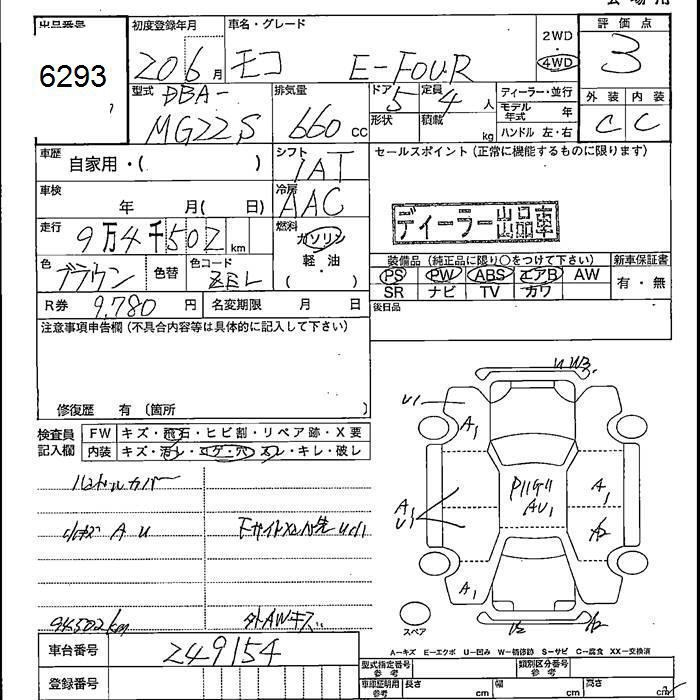 出品番号
6293
初度登録年月
20 6 月
車名・グレード
モコ E-FOUR
2WD
・
4WD
評価点
3
外装 内装
C C
型式
DBA-
MG22S
排気量
660 CC
ドア
5
形状
定員
4 人
積載
kg
ディーラー・並行
モデル年式 年
ハンドル 左・右
車歴
自家用・( )
シフト
IAT
車検
年 月( 日)
冷房
AAC
走行
9万4千502 km
燃料
ガソリン
軽・油
( )
色
ブラウン
色替
色コード
ZEL
R券 9,780 円
名変期限 月 日
セールスポイント(正常に機能するものに限ります)
ディーラー出品車
装備品(純正品に限り○をつけて下さい)
PS PW ABS エアB AW
SR ナビ TV カワ
新車保証書
有・無
後日品
注意事項申告欄(不具合内容等は具体的に記入して下さい)
修復歴 有 (箇所 )
検査員記入欄
FW キズ・飛石・ヒビ割・リペア跡・X要
内装 キズ・汚レ・コゲ・穴・スレ・キレ・破レ
ハンドルカバー
A U
94502km
外AWキズ
車台番号 249154
登録番号
U1
A1
A1
U1
A1
AU1
A1
A2
スペア
A-キズ E-エクボ U-凹み W-補修跡 S-サビ C-腐食 XX-交換済
型式指定番号
参考
類別区分番号
参考
車印証明用
参考
長さ cm
幅 cm
高さ cm